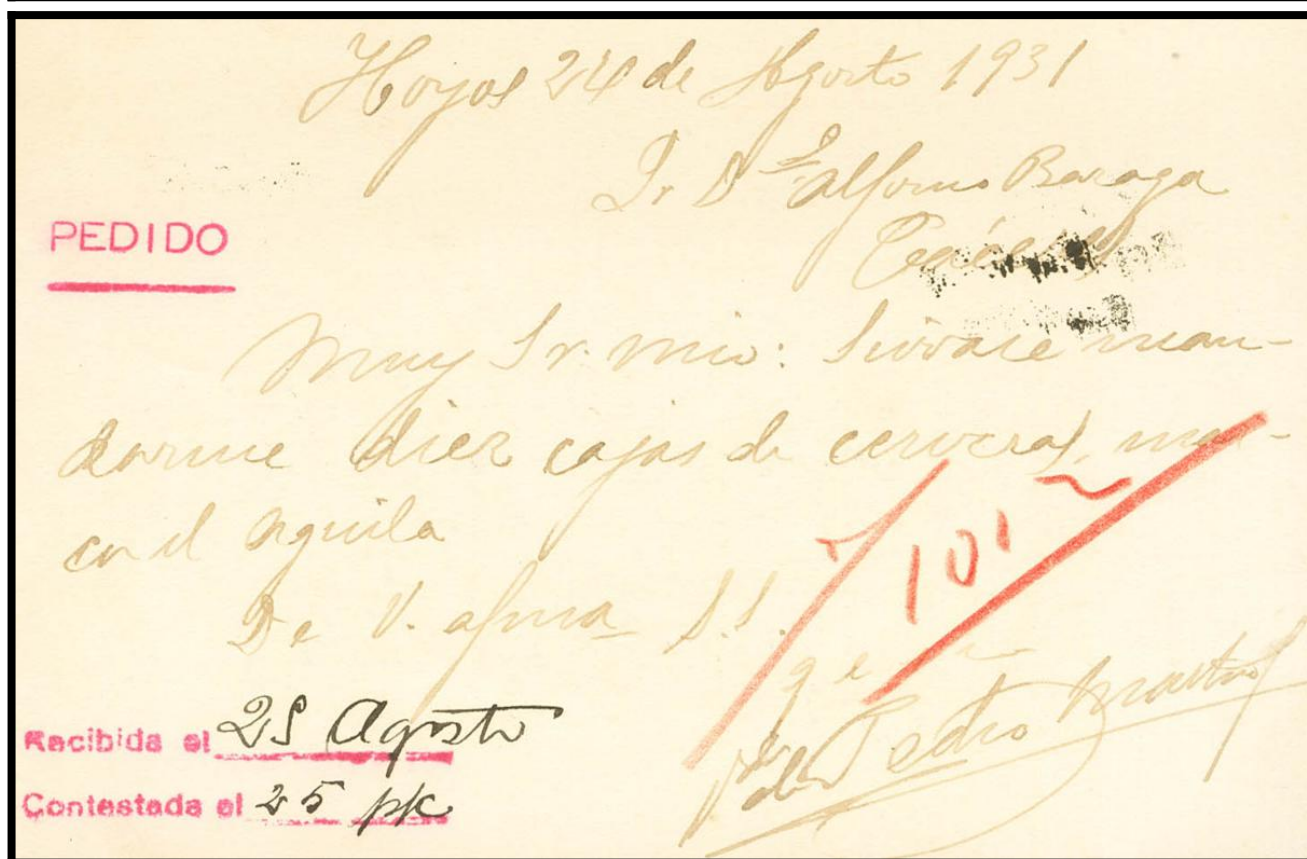 Hoyos 24 de Agosto 1931
Sr. D. Alfonso Baraga
Cáceres
PEDIDO
Muy Sr. mio: Sirvase man-
darme diez cajas de cervezas, mar-
ca el Aguila
De V. afmo S.S.
q e
101
Pedro Martin
Recibida el 25 Agosto
Contestada el 25 pk